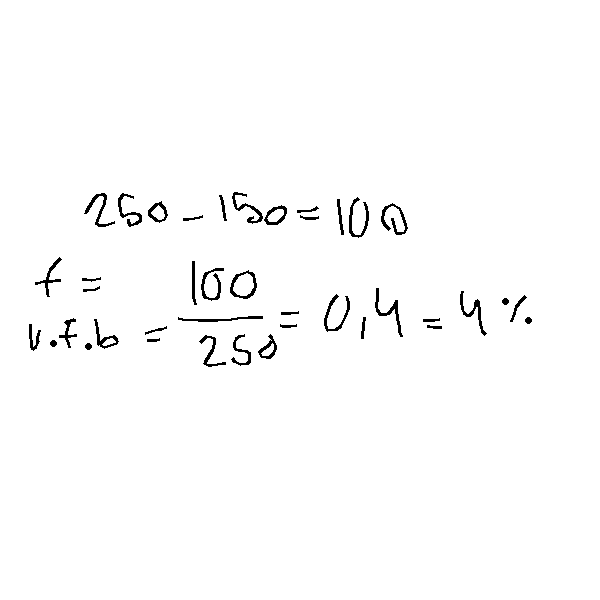 250 - 150 = 100
f =
v.f.b = 100/250 = 0,4 = 4%